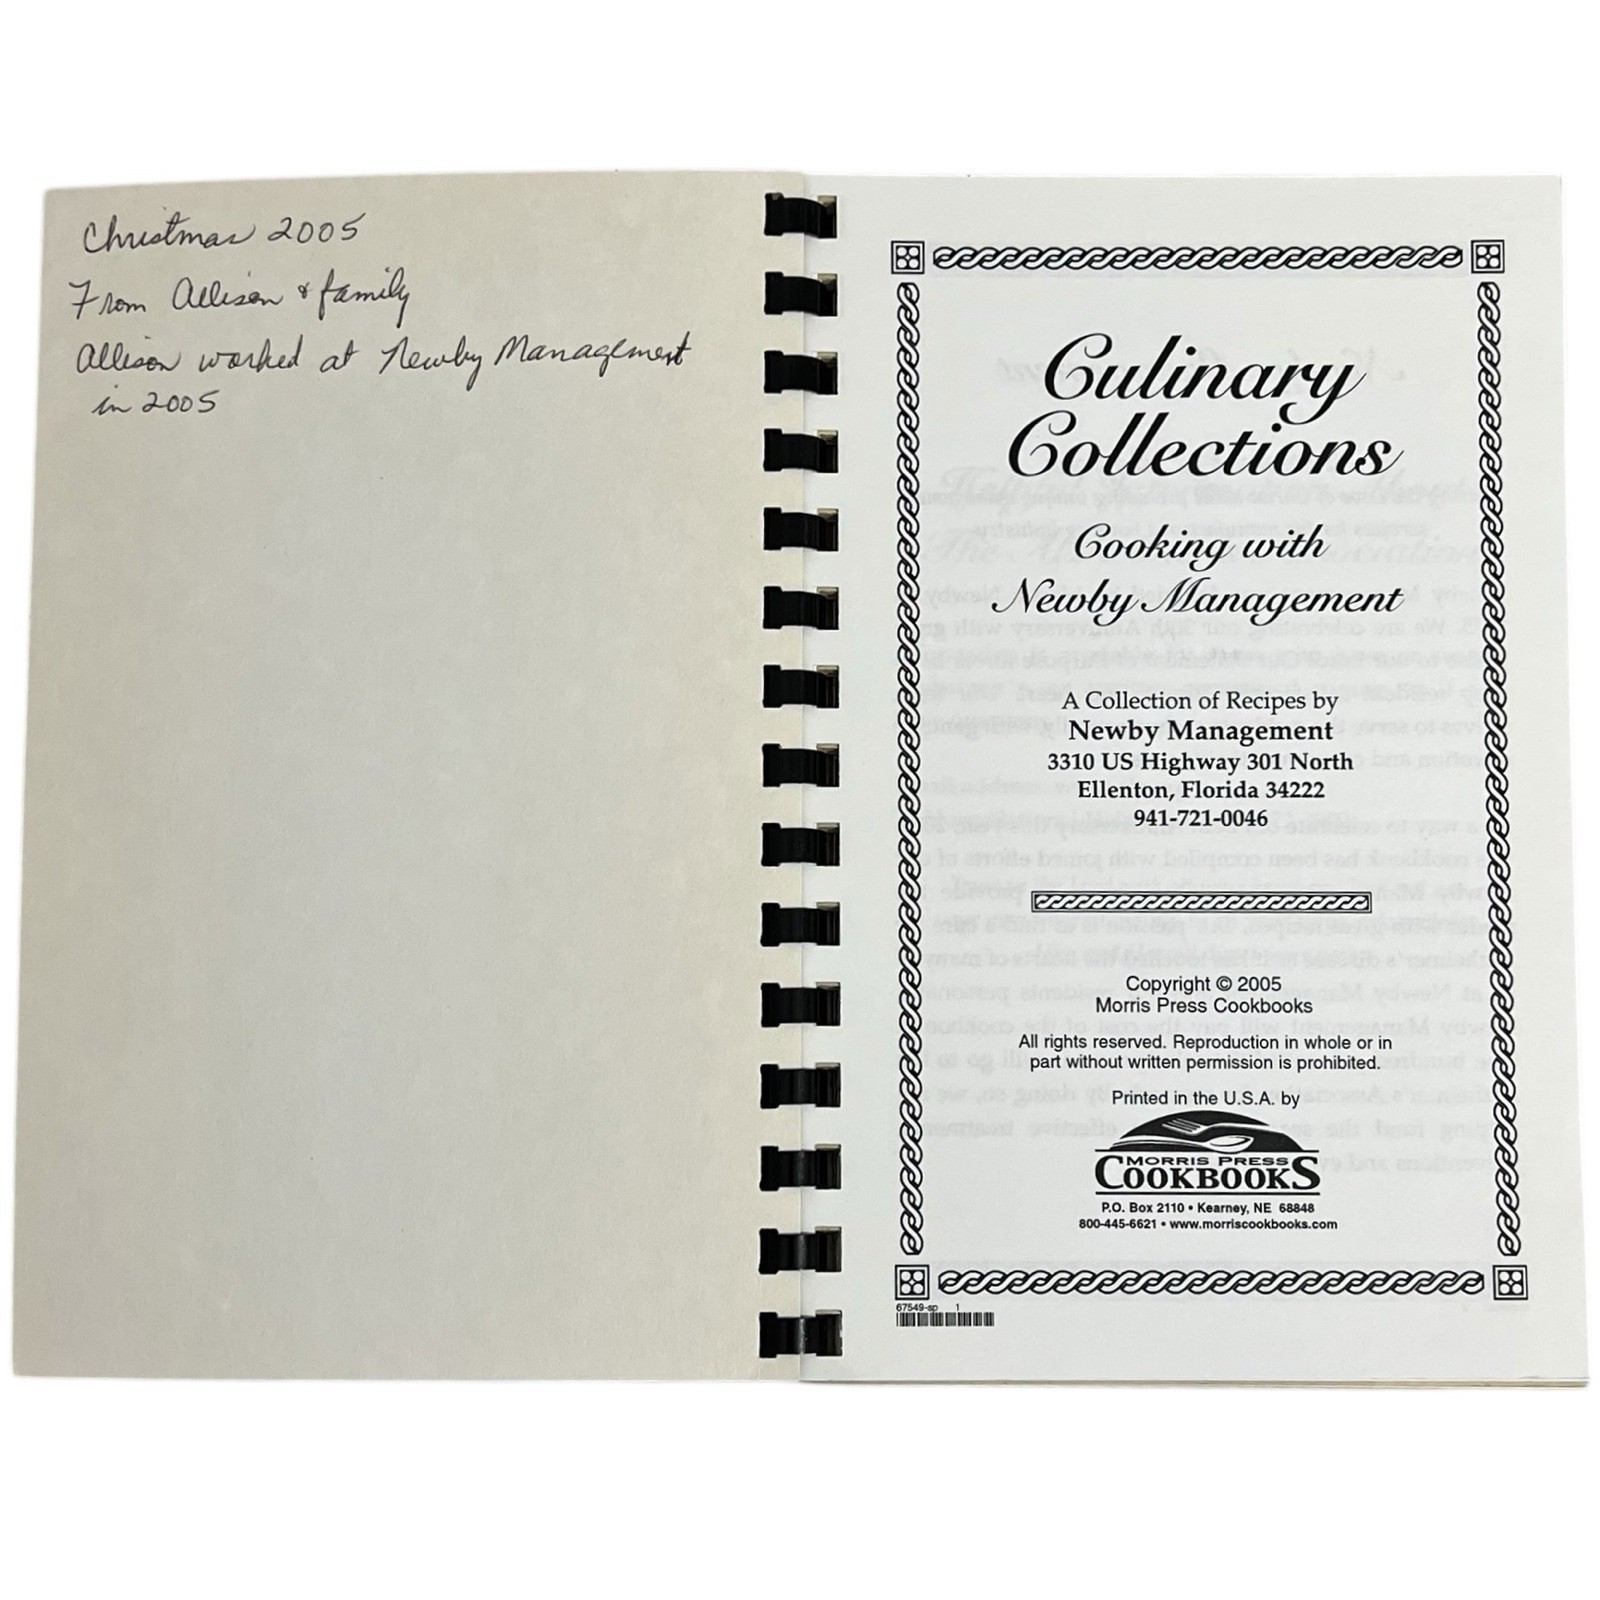 Christmas 2005
From Allison & family
Allison worked at Newby Management
in 2005
Culinary
Collections
Cooking with
Newby Management
A Collection of Recipes by
Newby Management
3310 US Highway 301 North
Ellenton, Florida 34222
941-721-0046
Copyright © 2005
Morris Press Cookbooks
All rights reserved. Reproduction in whole or in
part without written permission is prohibited.
Printed in the U.S.A. by
MORRIS PRESS
COOKBOOKS
P.O. Box 2110 • Kearney, NE 68848
800-445-6621 • www.morriscookbooks.com
67549-sp 1